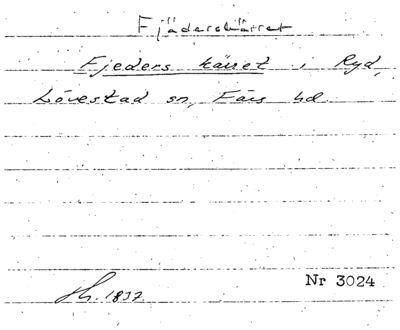 Fjäderskärret
Fjeders kärret i Ryd,
Lövestad sn, Färs hd.
1837.
Nr 3024